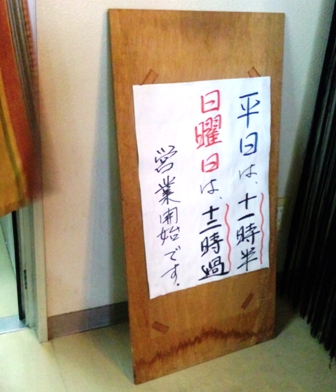 平日は、十一時半
日曜日は、十二時過
営業開始です.